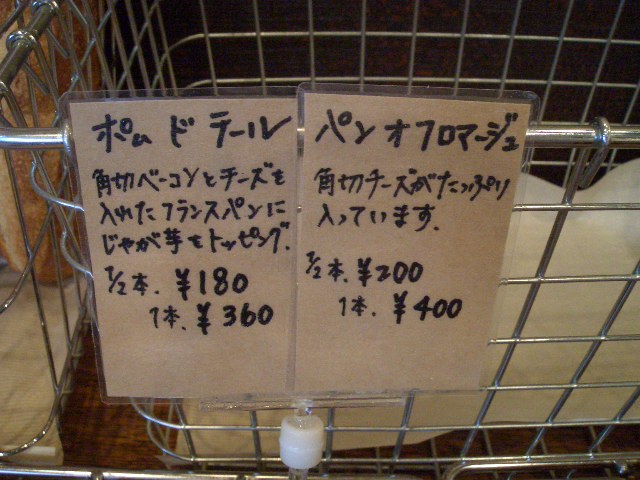 ポム ド テール
角切ベーコンとチーズを
入れたフランスパンに
じゃが芋をトッピング.
1/2本. ¥180
1本. ¥360
パン オ フロマージュ
角切チーズがたっぷり
入っています.
1/2本. ¥200
1本. ¥400